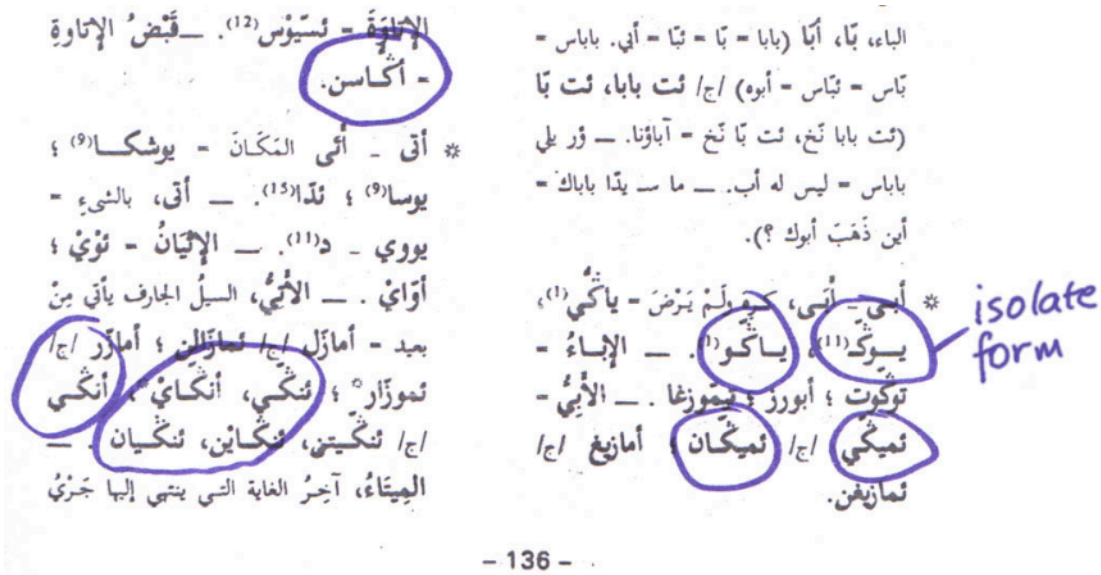 الباء، بّا، أبّا (بابا = بّا = ئبّا = أبي. باباس =
بّاس = ئبّاس = أبوه) /ج/ ئت بابا، ئت بّا
(ئت بابا نّخ، ئت بّا نّخ = آباؤنا. ـــ ؤر يلي
باباس = ليس له أب. ـــ ما ســ يدّا باباك =
أين ذَهَبَ أبوك ؟).
* أبى ـ أَبَـى، كَرِه ولَـمْ يَرْضَ = ياݣّي(1)،
يــوݣّـ(11)، يــاݣّــو(1). ـــ الإبــاءُ =
توݣّوت ؛ أبورز ؛ تيمّوزغا . ـــ الأَبِيُّ =
ئميݣّي /ج/ ئميݣّـان ؛ أمازيغ /ج/
ئمازيغن.
isolate
form
الإتاوَةَ = ئسّيوْس(12). ـــ قَبْضُ الإتاوةِ
= أݣّـاسن.
* أتى ـ أتَى المَكَـانَ = يوشكــا(9) ؛
يوسا(9) ؛ ئدّا(15). ـــ أتى، بالشيءِ =
يووي ـ د(11). ـــ الإتْيَانُ = ئوْيْ ؛
أوّايْ . ـــ الأَتِيُّ، السيلُ الجارف يأتي مِنْ
بعيد = أمازَل /ج/ ئمازَالن ؛ أمازّر /ج/
ئموزّار* ؛ ئنݣّـي، أنݣّـايْ*، أنݣّـي
/ج/ ئنݣّـيتن، ئنݣّـاين، ئنݣّـيان . ـــ
المِيتَاءُ، آخِـرُ الغاية التـي ينتهي إليها جَـرْيُ
– 136 –